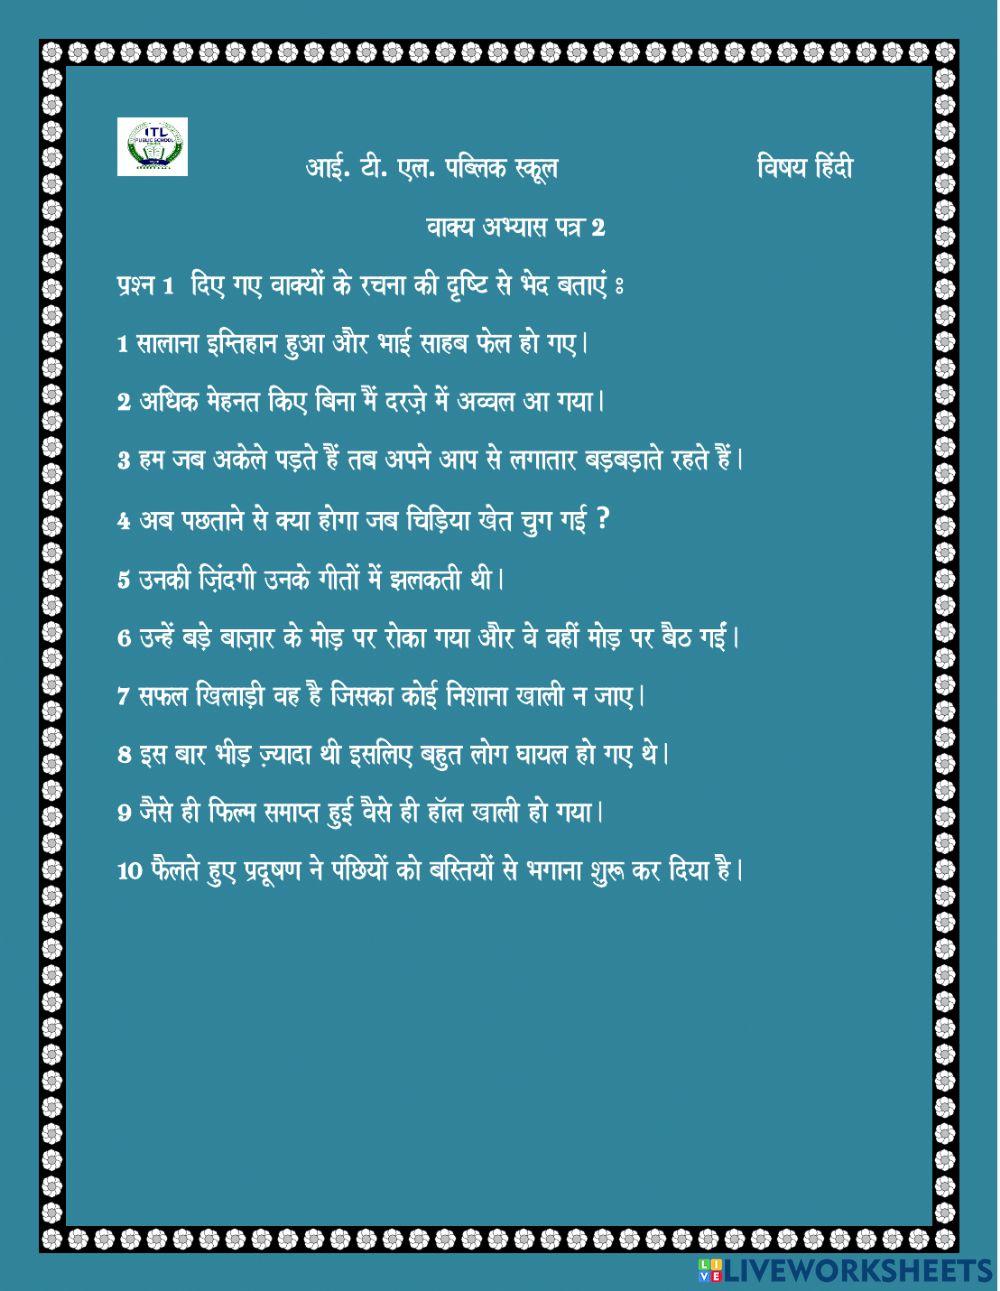 ITL
PUBLIC SCHOOL
आई. टी. एल. पब्लिक स्कूल विषय हिंदी
वाक्य अभ्यास पत्र 2
प्रश्न 1 दिए गए वाक्यों के रचना की दृष्टि से भेद बताएं :
1 सालाना इम्तिहान हुआ और भाई साहब फेल हो गए।
2 अधिक मेहनत किए बिना मैं दरज़े में अव्वल आ गया।
3 हम जब अकेले पड़ते हैं तब अपने आप से लगातार बड़बड़ाते रहते हैं।
4 अब पछताने से क्या होगा जब चिड़िया खेत चुग गई ?
5 उनकी ज़िंदगी उनके गीतों में झलकती थी।
6 उन्हें बड़े बाज़ार के मोड़ पर रोका गया और वे वहीं मोड़ पर बैठ गईं।
7 सफल खिलाड़ी वह है जिसका कोई निशाना खाली न जाए।
8 इस बार भीड़ ज़्यादा थी इसलिए बहुत लोग घायल हो गए थे।
9 जैसे ही फिल्म समाप्त हुई वैसे ही हॉल खाली हो गया।
10 फैलते हुए प्रदूषण ने पंछियों को बस्तियों से भगाना शुरू कर दिया है।
LIVE LIVEWORKSHEETS